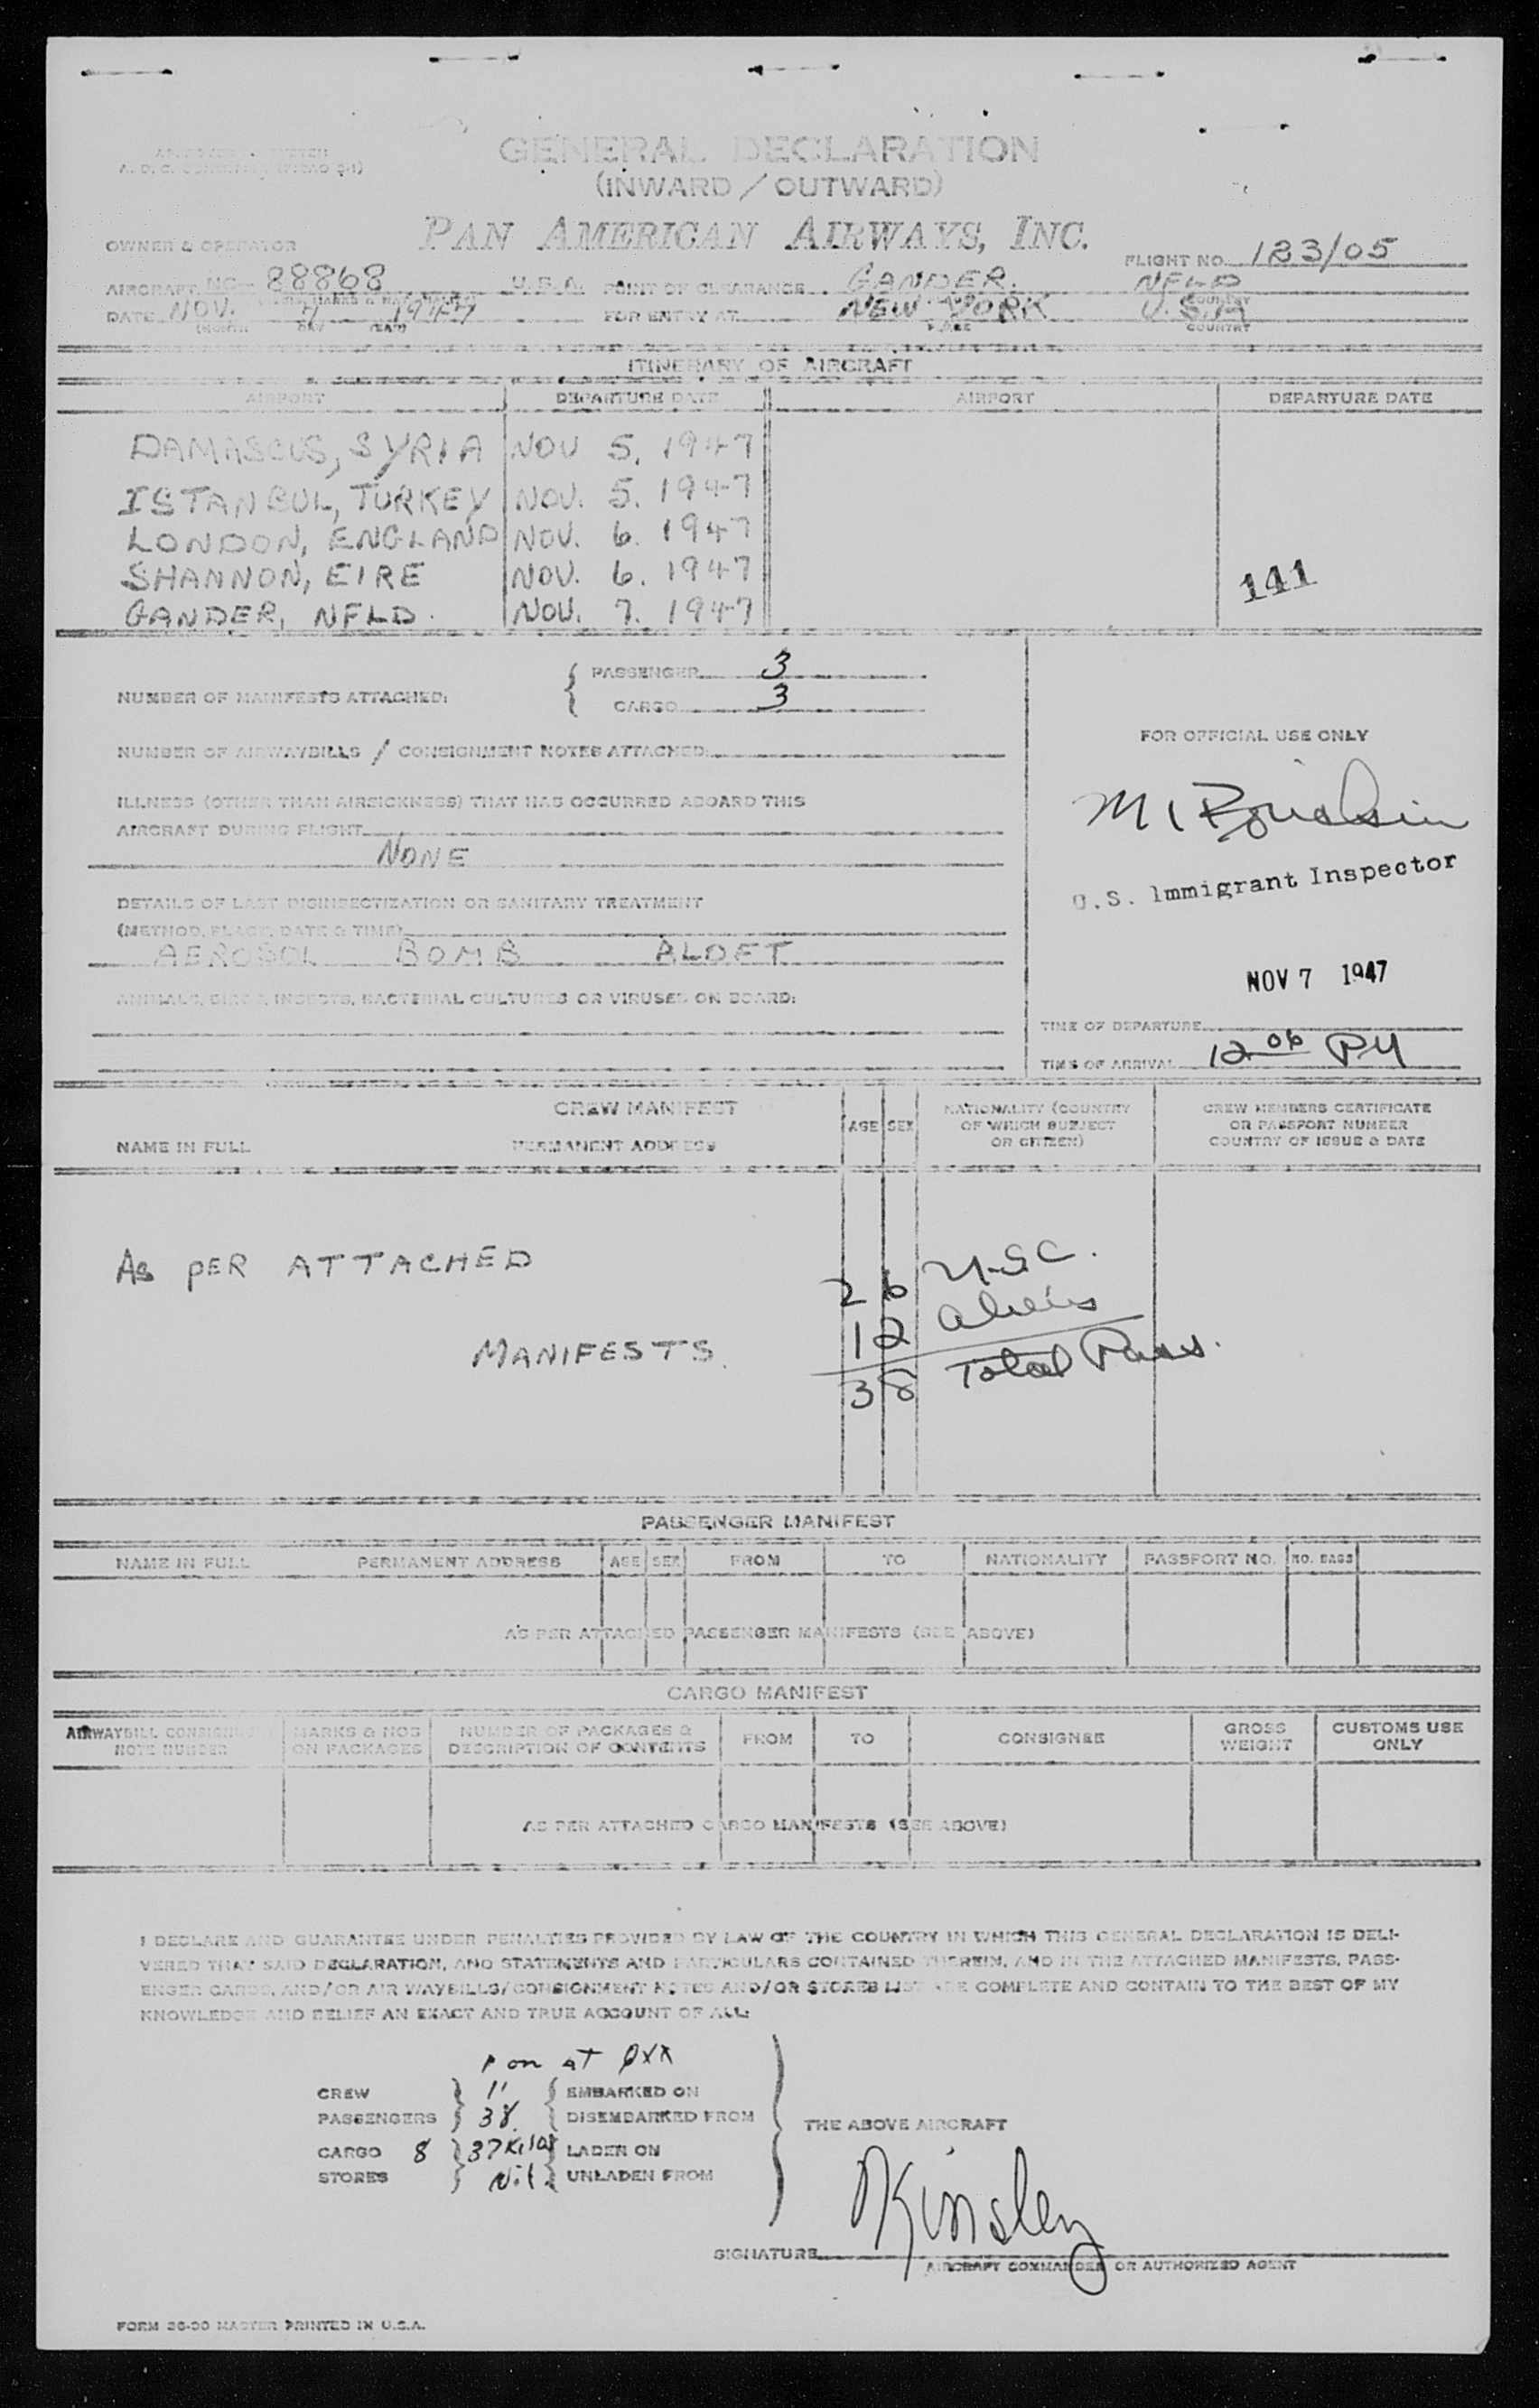 GENERAL DECLARATION
(INWARD / OUTWARD)
PAN AMERICAN AIRWAYS, INC.
OWNER & OPERATOR
FLIGHT NO. 123/05
AIRCRAFT NC- 88868 U.S.A. POINT OF CLEARANCE GANDER. NFLD
COUNTRY
DATE NOV. 7 1947 FOR ENTRY AT NEW YORK U.S.A
(MONTH DAY YEAR) PLACE COUNTRY
ITINERARY OF AIRCRAFT
AIRPORT DEPARTURE DATE AIRPORT DEPARTURE DATE
DAMASCUS, SYRIA NOV 5. 1947
ISTANBUL, TURKEY NOV. 5. 1947
LONDON, ENGLAND NOV. 6. 1947
SHANNON, EIRE NOV. 6. 1947
141
GANDER, NFLD. NOV. 7. 1947
NUMBER OF MANIFESTS ATTACHED:
PASSENGER 3
CARGO 3
NUMBER OF AIRWAYBILLS / CONSIGNMENT NOTES ATTACHED:
FOR OFFICIAL USE ONLY
ILLNESS (OTHER THAN AIRSICKNESS) THAT HAS OCCURRED ABOARD THIS
AIRCRAFT DURING FLIGHT
NONE
U.S. Immigrant Inspector
DETAILS OF LAST DISINSECTIZATION OR SANITARY TREATMENT
(METHOD, PLACE, DATE & TIME)
AEROSOL BOMB ALOFT
NOV 7 1947
ANIMALS, BIRDS, INSECTS, BACTERIAL CULTURES OR VIRUSES ON BOARD:
TIME OF DEPARTURE
TIME OF ARRIVAL 12 06 PM
CREW MANIFEST
NAME IN FULL PERMANENT ADDRESS AGE SEX NATIONALITY (COUNTRY OF WHICH SUBJECT OR CITIZEN) CREW MEMBERS CERTIFICATE OR PASSPORT NUMBER COUNTRY OF ISSUE & DATE
AS PER ATTACHED
MANIFESTS.
26 U.S.C.
12 aliens
38 Total Pass.
PASSENGER MANIFEST
NAME IN FULL PERMANENT ADDRESS AGE SEX FROM TO NATIONALITY PASSPORT NO. NO. BAGS
AS PER ATTACHED PASSENGER MANIFESTS (SEE ABOVE)
CARGO MANIFEST
AIRWAYBILL CONSIGNMENT NOTE NUMBER MARKS & NOS ON PACKAGES NUMBER OF PACKAGES & DESCRIPTION OF CONTENTS FROM TO CONSIGNEE GROSS WEIGHT CUSTOMS USE ONLY
AS PER ATTACHED CARGO MANIFESTS (SEE ABOVE)
I DECLARE AND GUARANTEE UNDER PENALTIES PROVIDED BY LAW OF THE COUNTRY IN WHICH THIS GENERAL DECLARATION IS DELI-
VERED THAT SAID DECLARATION, AND STATEMENTS AND PARTICULARS CONTAINED THEREIN, AND IN THE ATTACHED MANIFESTS, PASS-
ENGER CARDS, AND/OR AIR WAYBILLS/CONSIGNMENT NOTES AND/OR STORES LIST ARE COMPLETE AND CONTAIN TO THE BEST OF MY
KNOWLEDGE AND BELIEF AN EXACT AND TRUE ACCOUNT OF ALL:
on at
CREW 11 EMBARKED ON
PASSENGERS 38 DISEMBARKED FROM
THE ABOVE AIRCRAFT
CARGO 8 37 Kilos LADEN ON
STORES Nil UNLADEN FROM
Kinsley
SIGNATURE
AIRCRAFT COMMANDER OR AUTHORIZED AGENT
FORM 36-90 MASTER PRINTED IN U.S.A.